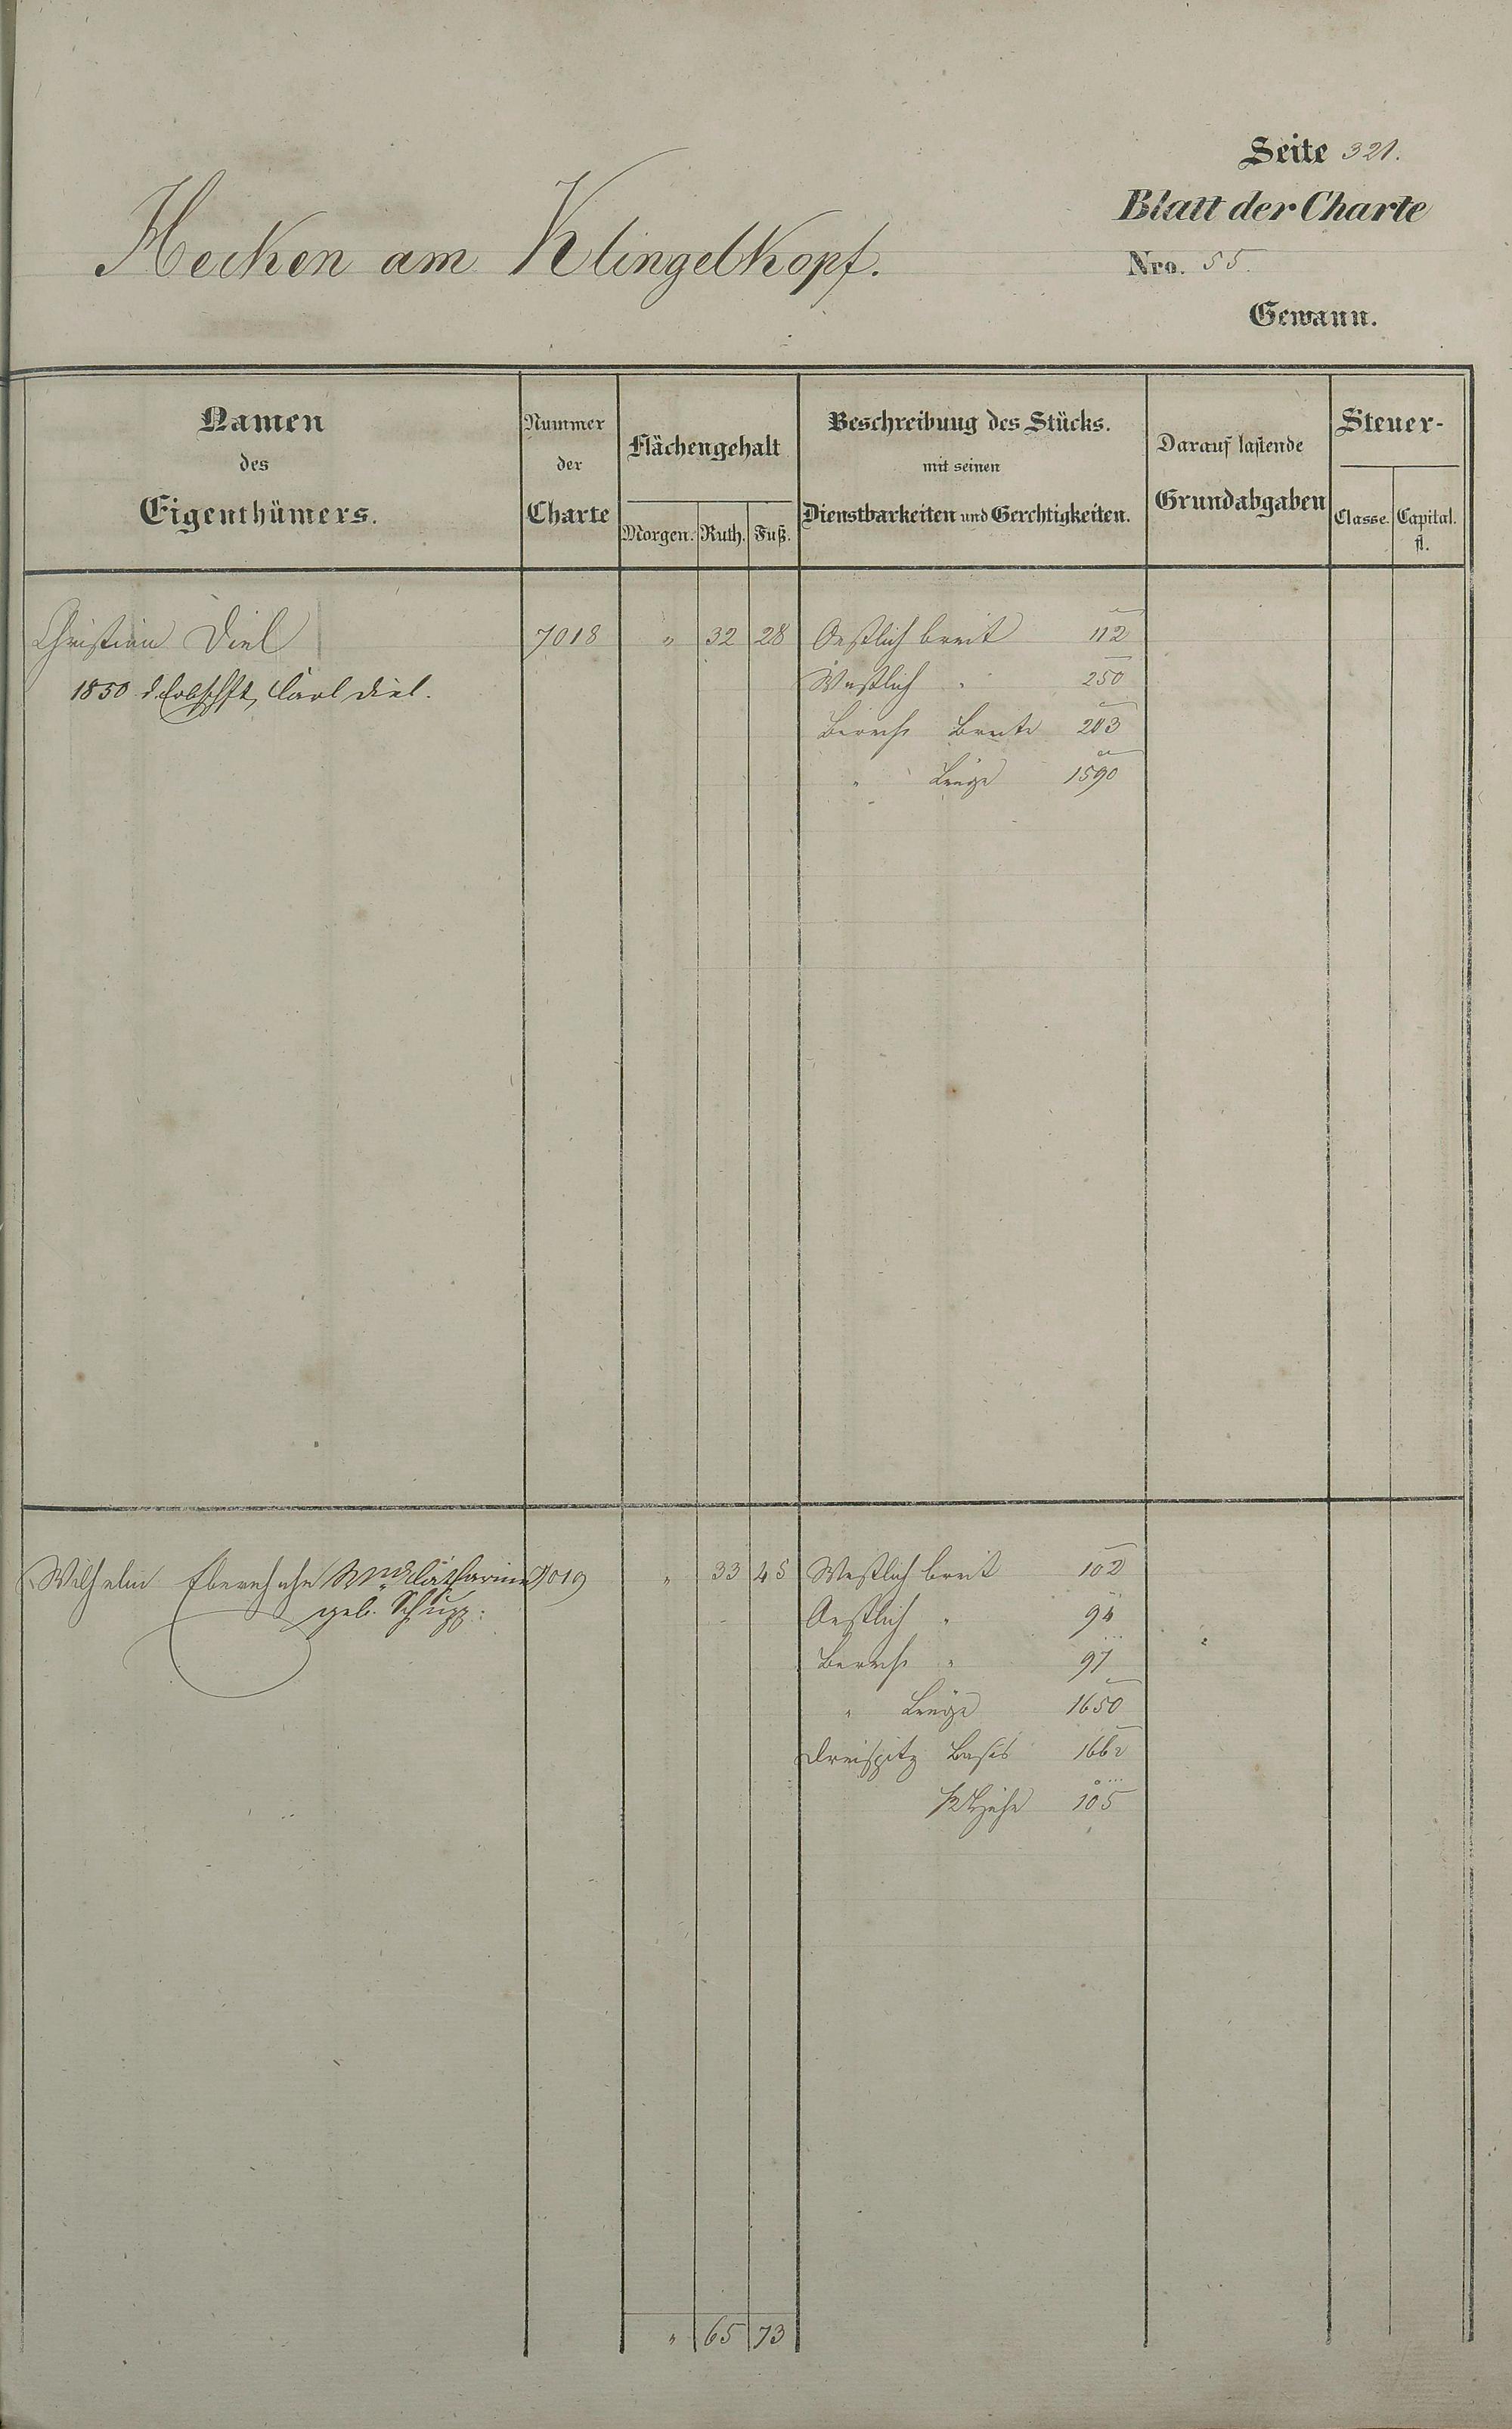 Seite 321.
Blatt der Charte
Hecken am Klingelkopf.
Nro. 55.
Gewann.
Namen des Eigenthümers.
Nummer der Charte
Flächengehalt
Morgen. Ruth. Fuß.
Beschreibung des Stücks. mit seinen Dienstbarkeiten und Gerchtigkeiten.
Darauf lastende Grundabgaben
Steuer-
Classe. Capital. fl.
Christian Diel 7018 " 32 28 Oestlich breit 112
1850 d. Erbschft, Carl Diel. Westlich " 250
Berech Breite 203
" Länge 1590
Wilhelm Ebenhahn Catharina 7019 " 33 45 Westlich breit 102
geb. Schupp: Oestlich "
Berech " 97
" Länge 1650
Dreispitz Basis 1662
1/2 Höhe 105
" 65 73